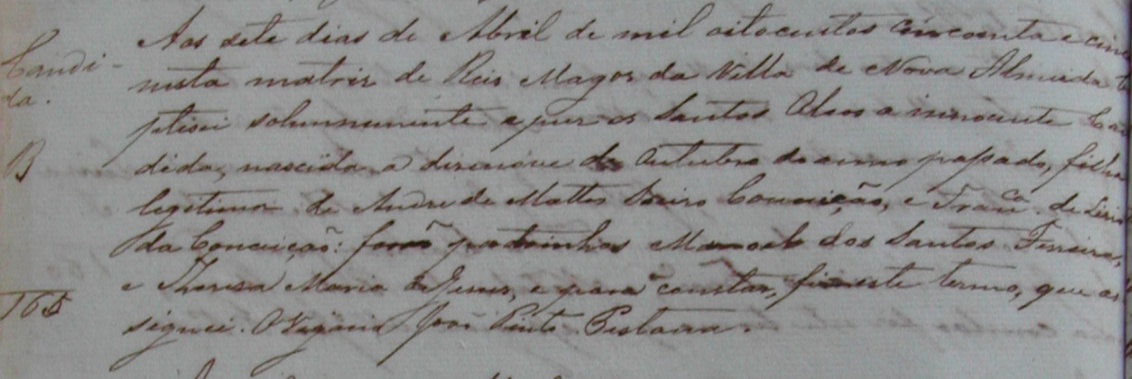 Candi-
da.
B
165
Aos sete dias de Abril de mil oitocentos cincoenta e cinco
nesta matriz de Reis Magos da Villa de Nova Almeida ba
ptisei solemnemente e puz os Santos Oleos a innocente Can
dida, nascida a desenove de Outubro do anno passado, filha
legitima de Andre de Mattos Conceição, e Franca. de
da Conceição: forão padrinhos Manoel dos Santos Ferreira,
e Theresa Maria de Jesus, e para constar, fiz este termo, que as
signei. O Vigario João Pinto Pestana.